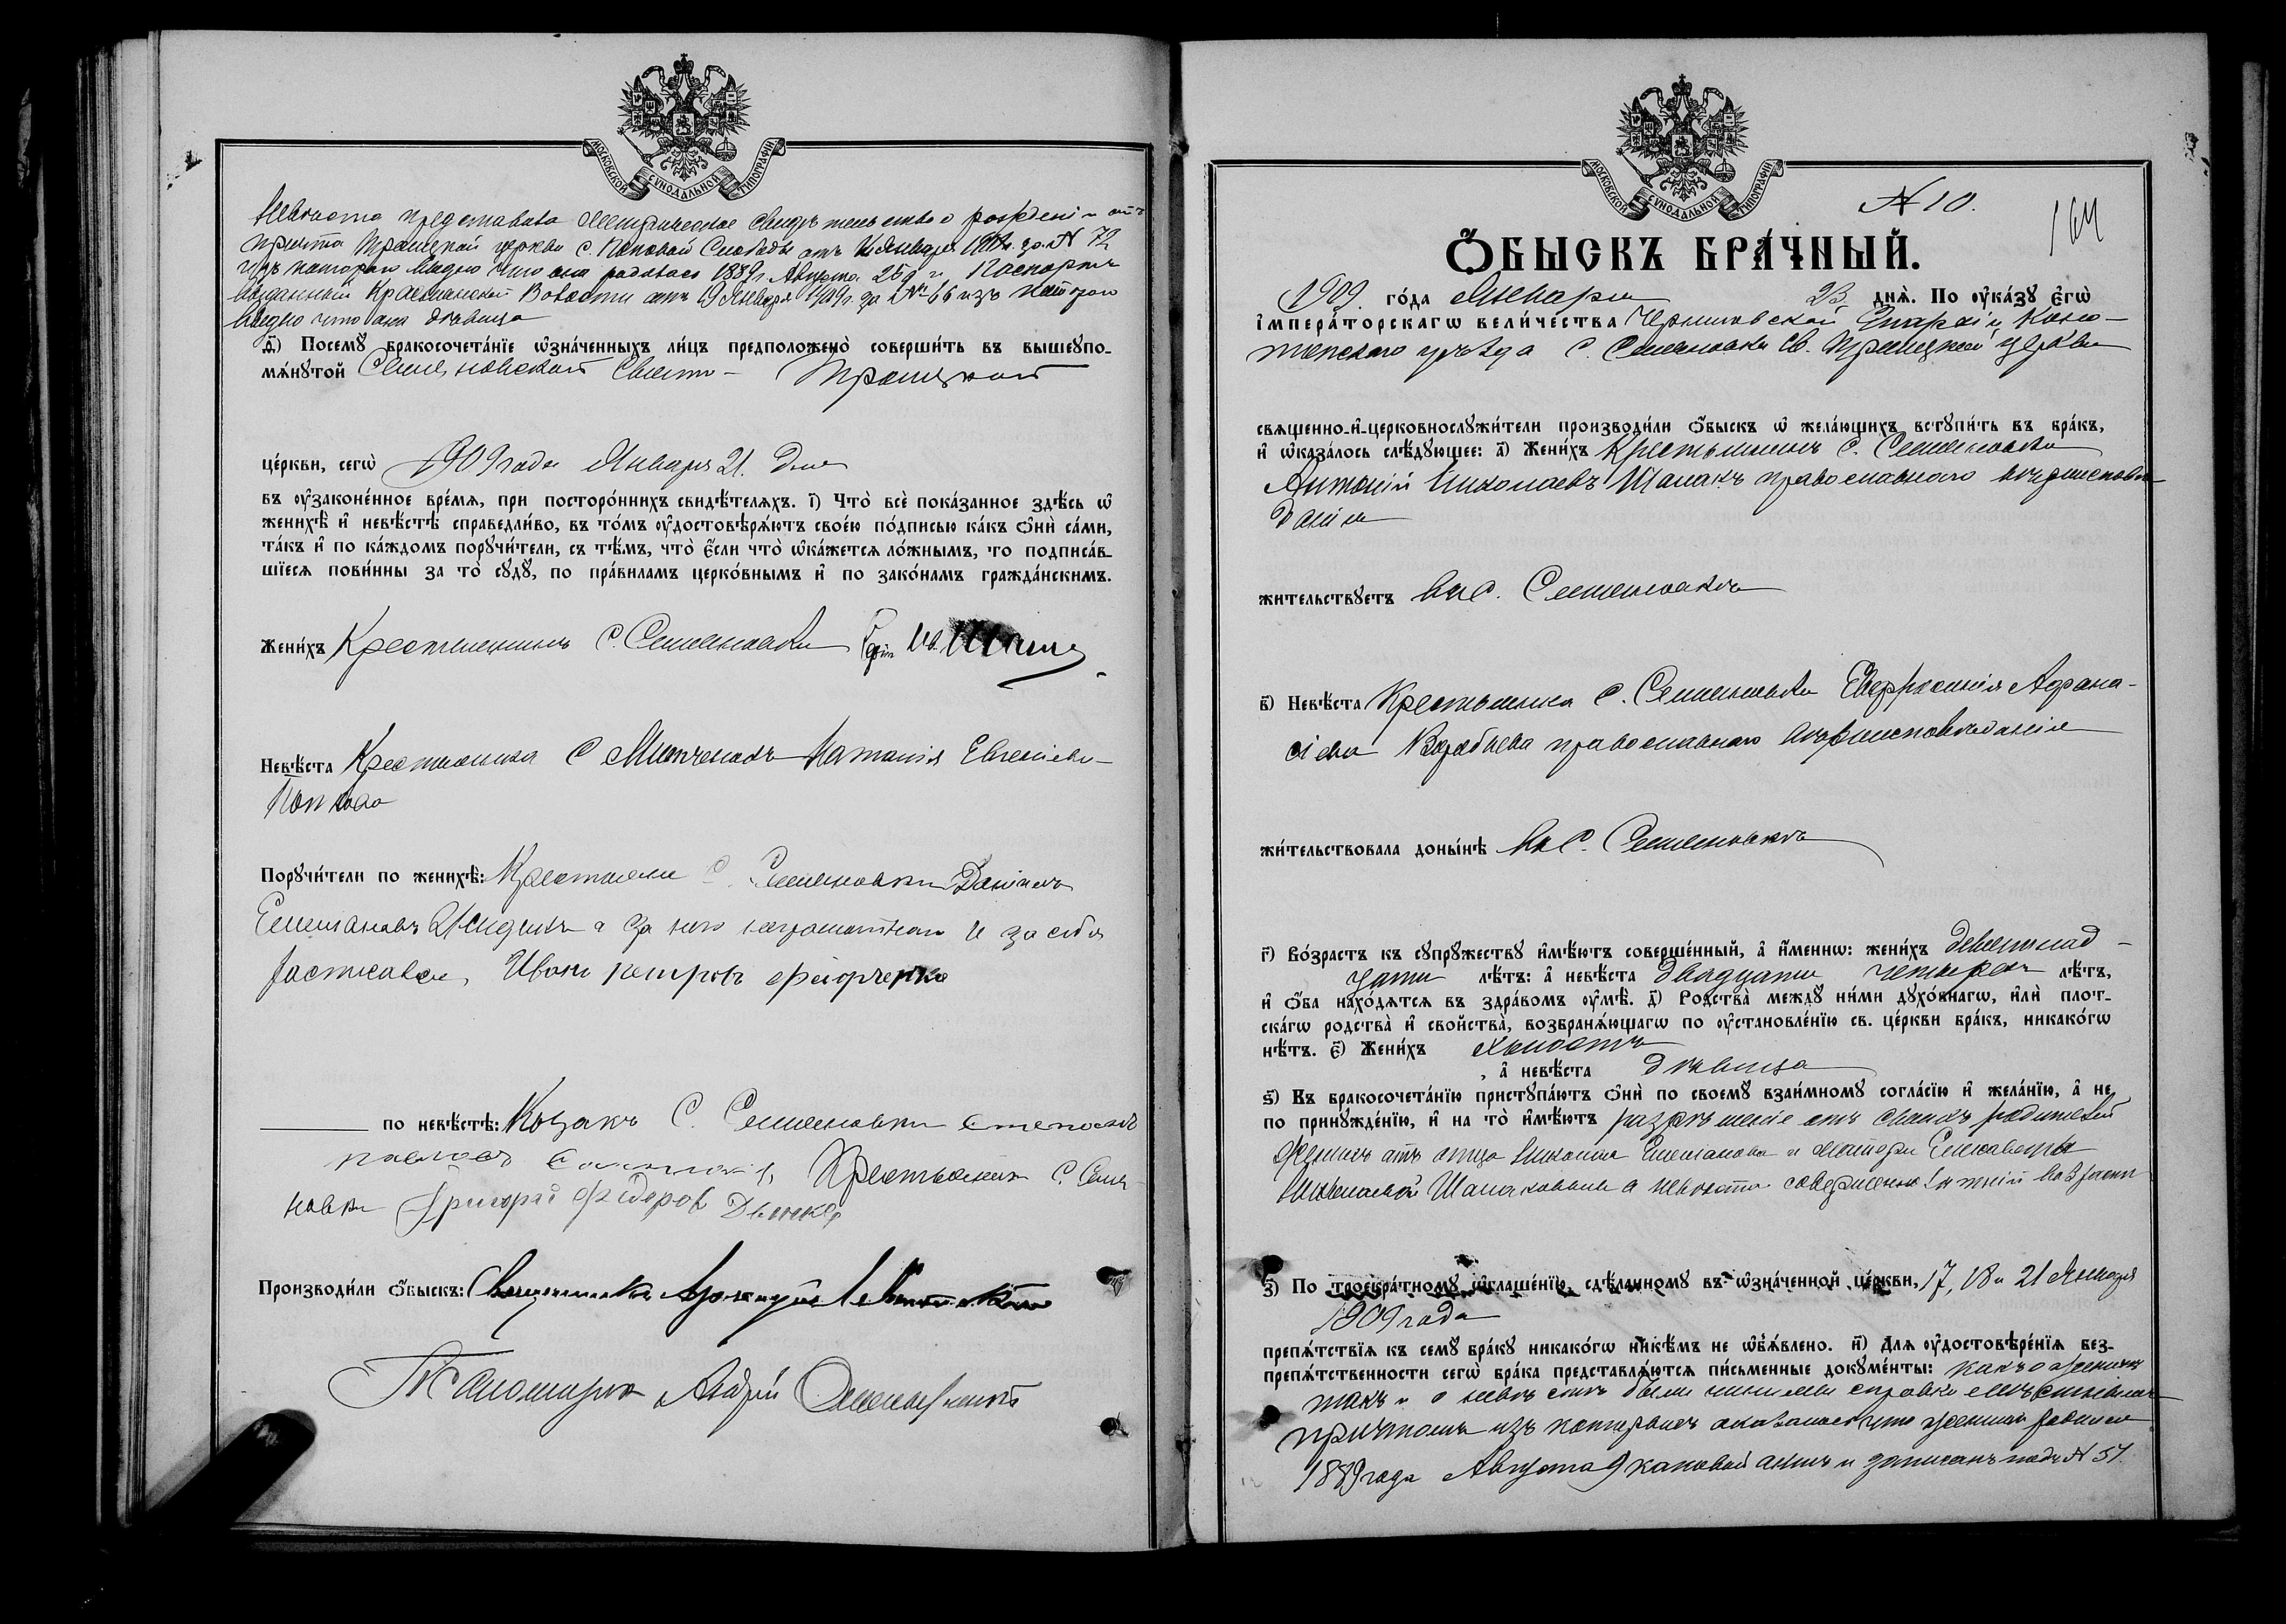 МОСКОВСКОЙ СУНОДАЛЬНОЙ ТИПОГРАФІИ
Невѣста представила Метрическое свидѣтельство о рожденіи отъ
причта Троицкой церкви с. Поповой Слободы отъ Января за № 72
изъ котораго видно что она родилась 1889 г. Августа 25 д. и Паспортъ
выданный Волости отъ 19 Января 1909 г. за № 66 изъ котораго
видно что она дѣвица
д҃і) Посемꙋ бракосочета́нїе ѡ҆зна́ченныхъ ли́цъ предположено̀ соверши́ть въ вышеꙋпо-
мѧ́нꙋтой Семеновской Свято- Троицкой
це́ркви, сегѡ̀ 1909 года Января 21. дня
въ ᲂу҆зако́ненное вре́мѧ, при посторо́ннихъ свидѣ́телѧхъ. і҃) Что̀ всѐ пока́занное здѣ́сь ѡ҆
женихѣ̀ и҆ невѣ́стѣ справедли́во, въ то́мъ ᲂу҆достовѣрѧ́ютъ свое́ю по́дписью ка́къ ѻ҆нѝ са́ми,
та́къ и҆ по ка́ждомъ порꙋчи́тели, съ тѣ́мъ, что̀ є҆́сли что̀ ѡ҆ка́жетсѧ ло́жнымъ, то подписа́в-
шїесѧ пови́нны за то̀ сꙋдꙋ̀, по пра́виламъ церко́внымъ и҆ по зако́намъ гражда́нскимъ.
Жени́хъ Крестьянинъ с. Семеновки
Невѣ́ста Крестьянка с Наталія Евгеніева
Порꙋчи́тели по женихѣ̀: Крестьяне с. Семеновки Даніилъ
а за него неграмотнаго и за себя
росписался Иванъ Петровъ Федорченко
по невѣ́стѣ: Козакъ с. Семеновки
Крестьянинъ с. Семе-
новки Григорій Федоров
Производи́ли ѻ҆́быскъ: Священникъ
Псаломщикъ Андрей
МОСКОВСКОЙ СУНОДАЛЬНОЙ ТИПОГРАФІИ
№ 10.
164
Ѻ҆́БЫСКЪ БРА́ЧНЫЙ.
1909 го́да Января 23 днѧ̀. По ᲂу҆ка́зꙋ є҆гѡ̀
і҆мпера́торскагѡ вели́чества Черниговской Епархіи, Коно-
топскаго уѣзда с. Семеновки Св. Троицкой церкви
свѧщенно-и҆-церковнослꙋжи́тели производи́ли ѻ҆́быскъ ѡ҆ жела́ющихъ встꙋпи́ть въ бра́къ,
и҆ ѡ҆каза́лось слѣ́дꙋющее: а҃) Жени́хъ Крестьянинъ с. Семеновки
Антоній Николаевъ Шапакъ православнаго вѣроисповѣ-
данія
жи́тельствꙋетъ въ с. Семеновкѣ
в҃) Невѣ́ста Крестьянка с. Семеновки Евфросинія Афана-
сіева Воробьева православнаго вѣроисповѣданія
жи́тельствовала доны́нѣ въ с. Семеновкѣ
г҃) Во́зрастъ къ сꙋпрꙋ́жествꙋ и҆мѣ́ютъ соверше́нный, а҆ и҆́меннѡ: жени́хъ девятнад-
цати лѣ́тъ: а҆ невѣ́ста двадцати четырехъ лѣ́тъ,
и҆ ѻ҆́ба нахо́дѧтсѧ въ здра́вомъ ᲂу҆мѣ̀. д҃) Родства̀ междꙋ̀ ни́ми дꙋхо́внагѡ, и҆лѝ плот-
ска́гѡ родства̀ и҆ сво́йства̀, возбранѧ́ющагѡ по ᲂу҆становле́нїю св. це́ркви бра́къ, никако́гѡ
нѣ́тъ. є҃) Жени́хъ холостъ
, а҆ невѣ́ста дѣвица
ѕ҃) Въ бракосочета́нїю пристꙋпа́ютъ ѻ҆нѝ по своемꙋ̀ взаи́мномꙋ согла́сїю и҆ жела́нїю, а҆ не
по принꙋжде́нїю, и҆ на то̀ и҆мѣ́ютъ разрѣшеніе отъ своихъ родителей
женихъ отъ отца Николая Емельянова и матери Елисаветы
Николаевой Шапаковыхъ а невѣста совершеннолѣтній возрастъ
з҃) По троекра́тномꙋ ѡ҆глаше́нїю, сдѣ́ланномꙋ въ ѡ҆зна́ченной це́ркви, 17, 18 и 21 Января
1909 года
препѧ́тствїѧ къ семꙋ̀ бра́кꙋ никако́гѡ никѣ́мъ не ѡ҆б̾ѧ́влено. и҃) Длѧ ᲂу҆достовѣре́нїѧ без-
препѧ́тственности сегѡ̀ бра́ка представлѧ́ютсѧ пи́сьменные докꙋме́нты: какъ о женихѣ
такъ и о невѣстѣ были чинимы справки мѣстнымъ
причтомъ изъ которыхъ оказалось что женихъ родился
1889 года Августа 9 каковой актъ и записанъ подъ № 51.